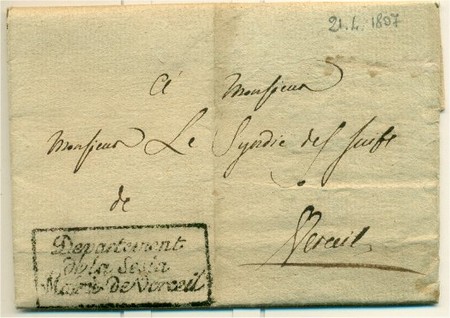 21.4.1807
à Monsieur
Monsieur Le Syndic des Juifs
de
Verceil
Departement
de la Sesia
Mairie de Verceil